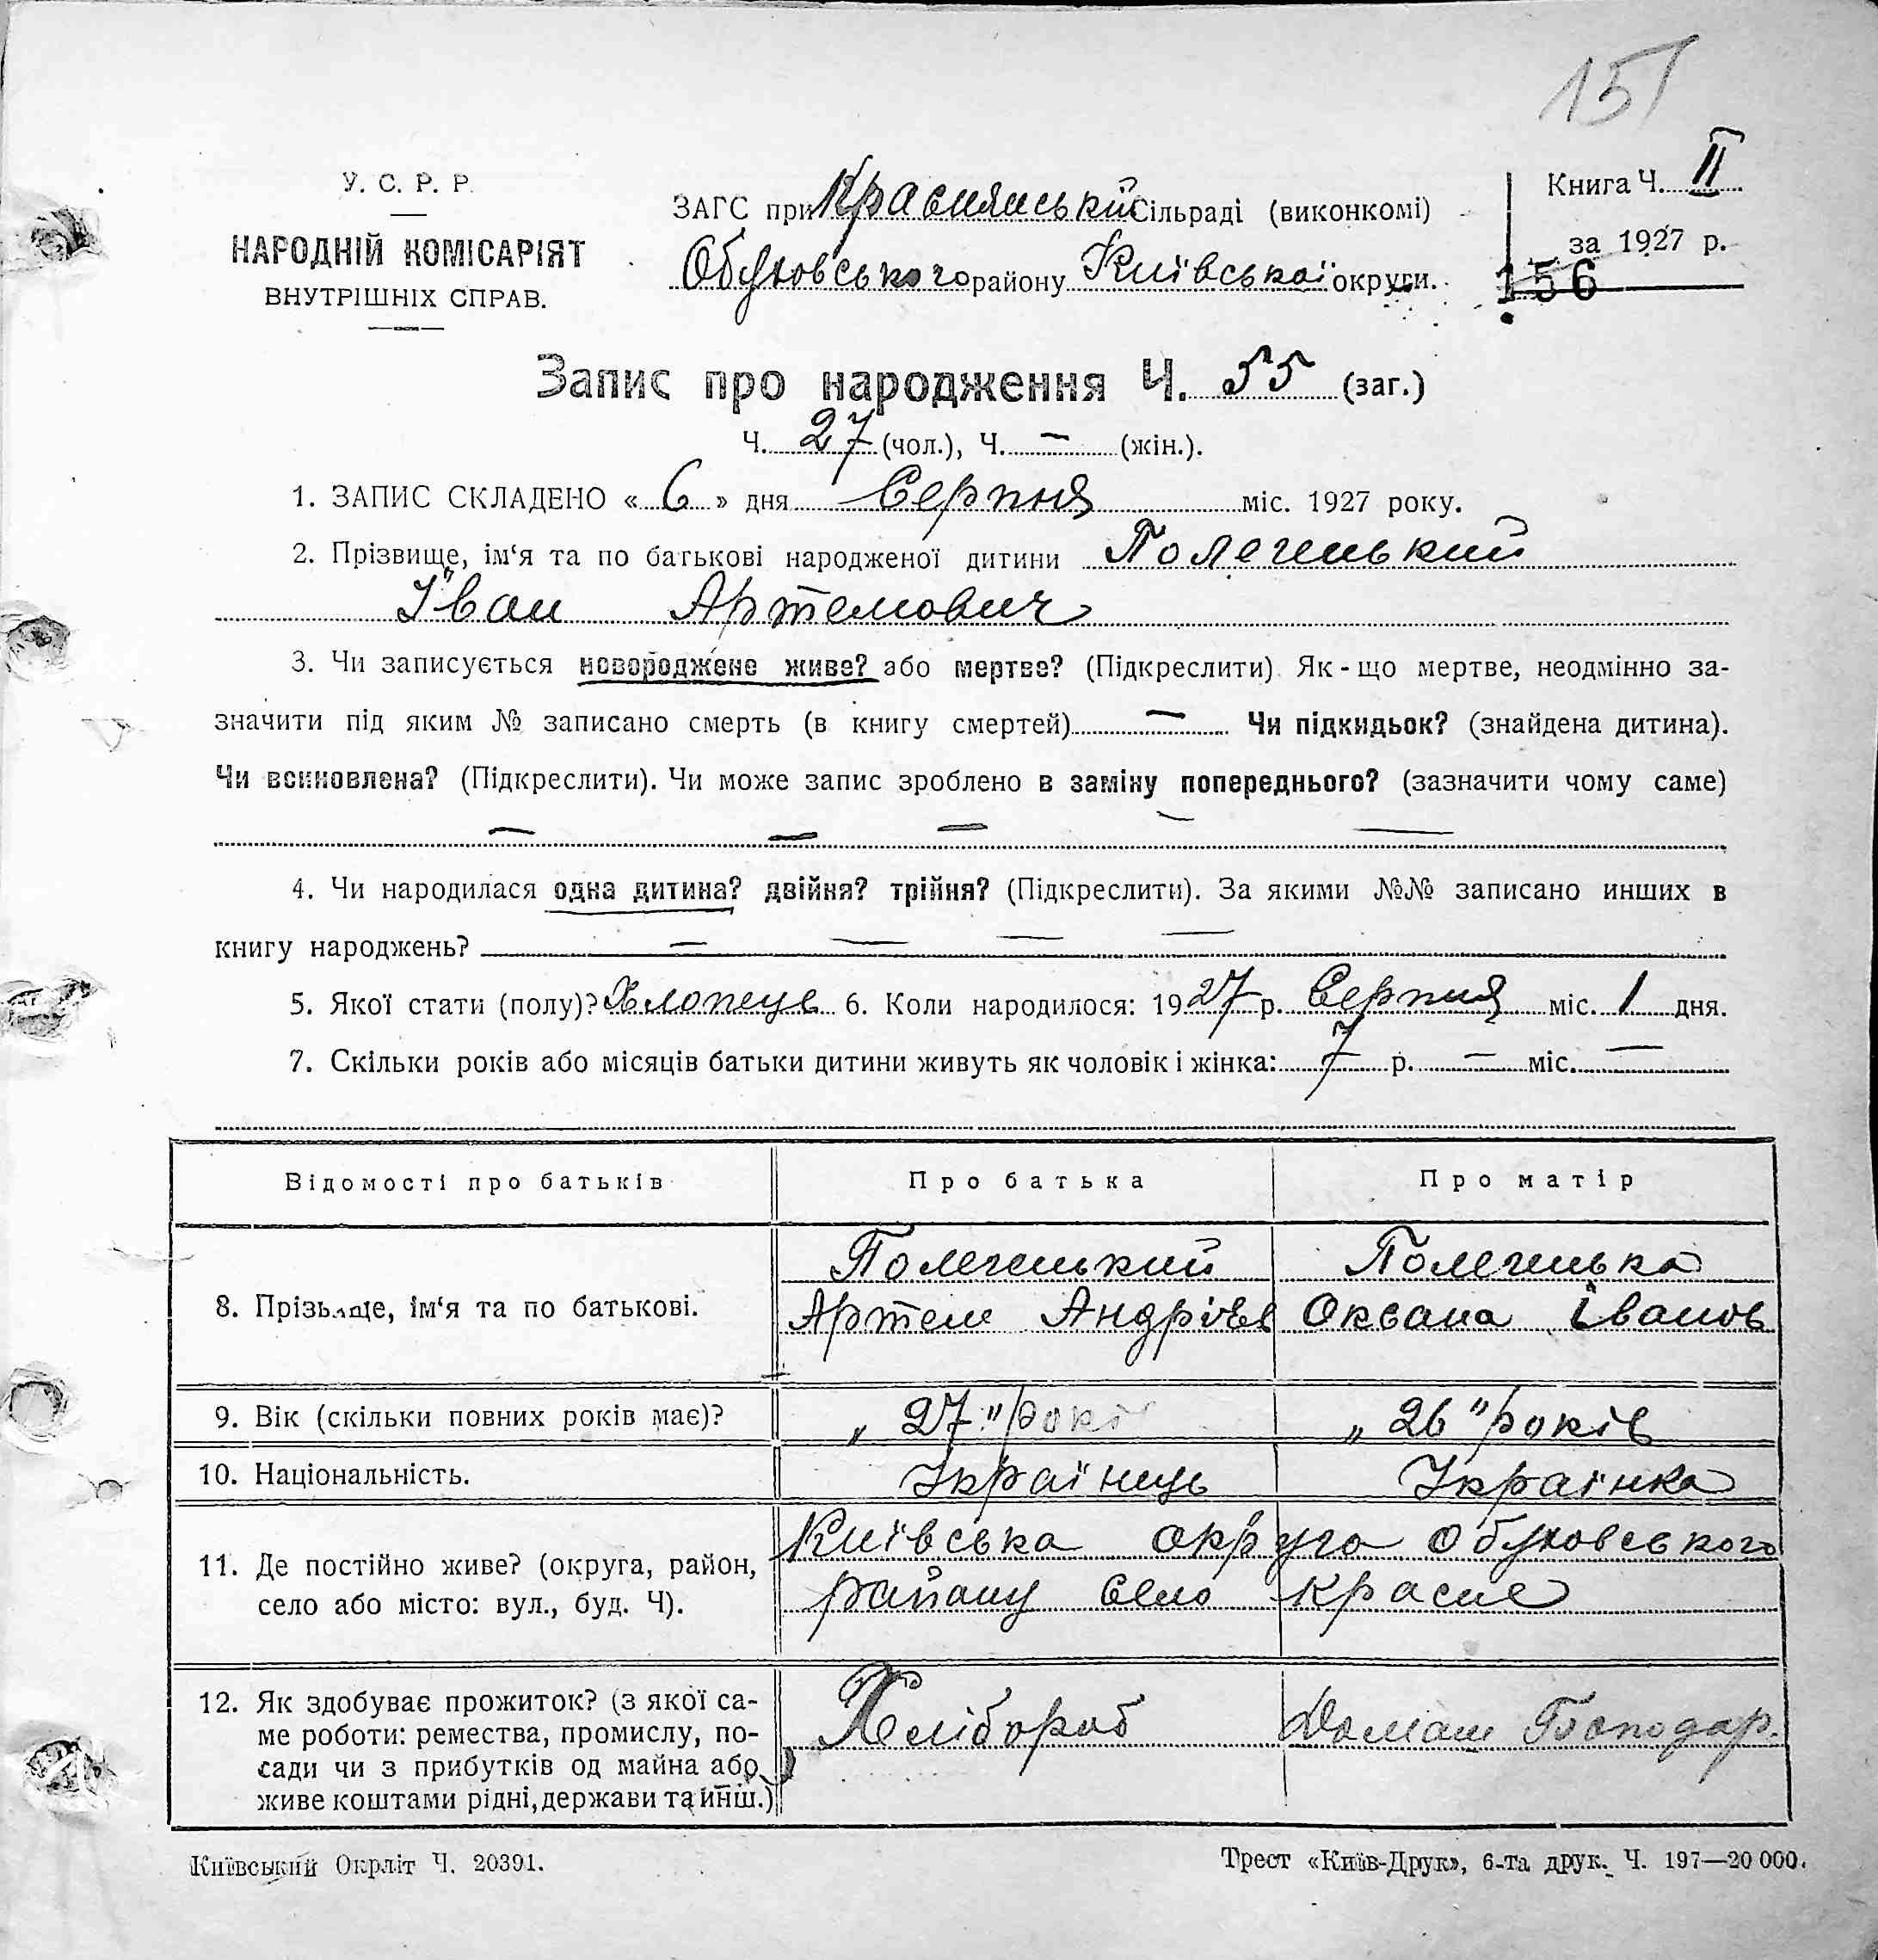 151
У. С. Р. Р.
НАРОДНІЙ КОМІСАРІЯТ
ВНУТРІШНІХ СПРАВ.
ЗАГС при Краснянській Сільраді (виконкомі)
Обуховського району Київської округи.
Книга Ч. II
за 1927 р.
156
Запис про народження Ч. 55 (заг.)
Ч. 27 (чол.), Ч. — (жін.).
1. ЗАПИС СКЛАДЕНО « 6 » дня Серпня міс. 1927 року.
2. Прізвище, ім‘я та по батькові народженої дитини Полегенький
Іван Артемович
3. Чи записується новороджене живе? або мертве? (Підкреслити) Як-що мертве, неодмінно за-
значити під яким № записано смерть (в книгу смертей) — Чи підкидьок? (знайдена дитина).
Чи всиновлена? (Підкреслити). Чи може запис зроблено в заміну попереднього? (зазначити чому саме)
— — — — —
4. Чи народилася одна дитина? двійня? трійня? (Підкреслити). За якими №№ записано инших в
книгу народжень? — — — —
5. Якої стати (полу)? Хлопець 6. Коли народилося: 1927 р. Серпня міс. 1 дня.
7. Скільки років або місяців батьки дитини живуть як чоловік і жінка: 7 р. — міс. —
Відомості про батьків Про батька Про матір
8. Прізвище, ім‘я та по батькові.
Полегенький Полегенька
Артем Андріїв Оксана Іванов
9. Вік (скільки повних років має)? „27" років „26" років
10. Національність. Українець Українка
11. Де постійно живе? (округа, район,
село або місто: вул., буд. Ч).
Київська округа Обуховського
району село Красне
12. Як здобуває прожиток? (з якої са-
ме роботи: ремества, промислу, по-
сади чи з прибутків од майна або
живе коштами рідні, держави та инш.)
Хлібороб Домаш Господар.
Київський Окрліт Ч. 20391.
Трест «Київ-Друк», 6-та друк. Ч. 197—20 000.